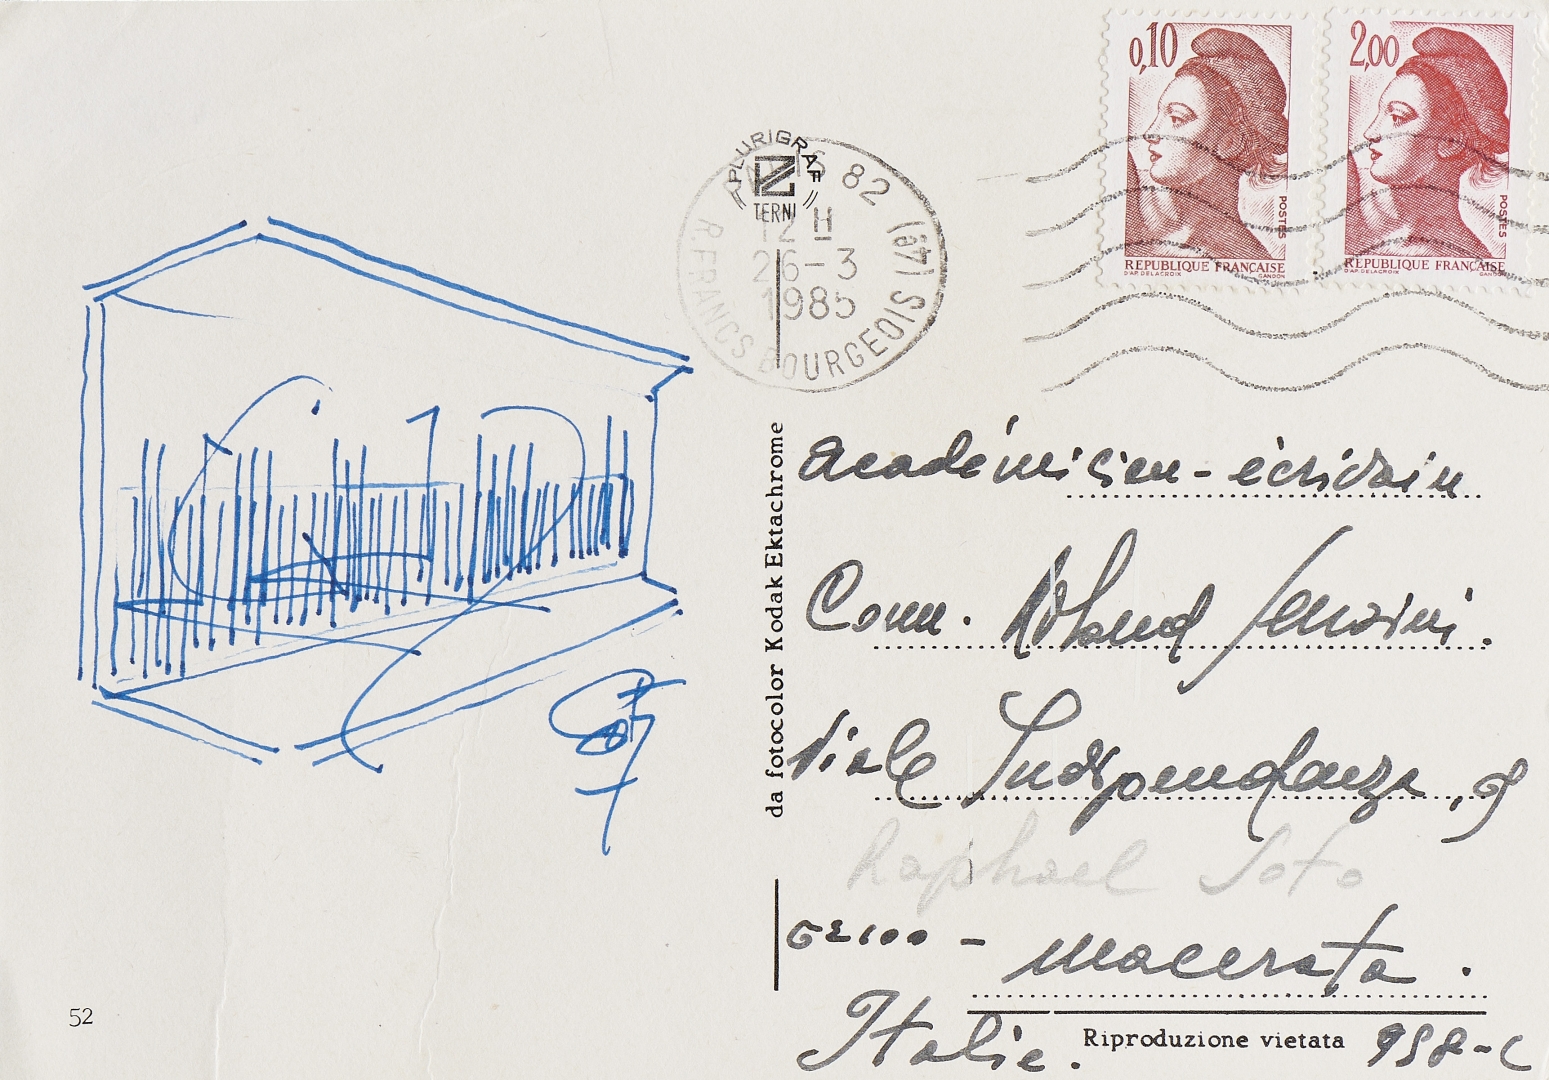 0,10
REPUBLIQUE FRANÇAISE
POSTES
D'AP. DELACROIX
GANDON
2,00
REPUBLIQUE FRANÇAISE
POSTES
D'AP. DELACROIX
GANDON
PLURIGRAF
TERNI
PARIS 82 (4e)
12 H
26-3
1985
R. FRANCS BOURGEOIS
da fotocolor Kodak Ektachrome
académicien-écrivain
Comm.
Viale Indipendanza,
Raphael Soto
62100 - Macerata.
Italie.
Riproduzione vietata
958-C
52